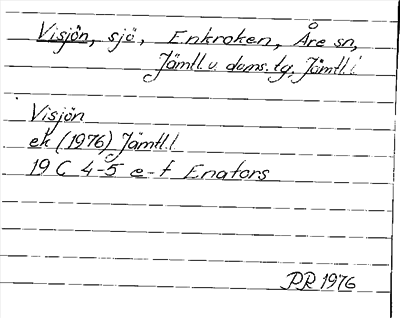 Visjön, sjö, Enkroken, Åre sn,
Jämtl. v. doms. lg, Jämtl. l.
Visjön
ek (1976) Jämtl. l
19 C 4-5 e-f Enafors
PR 1976